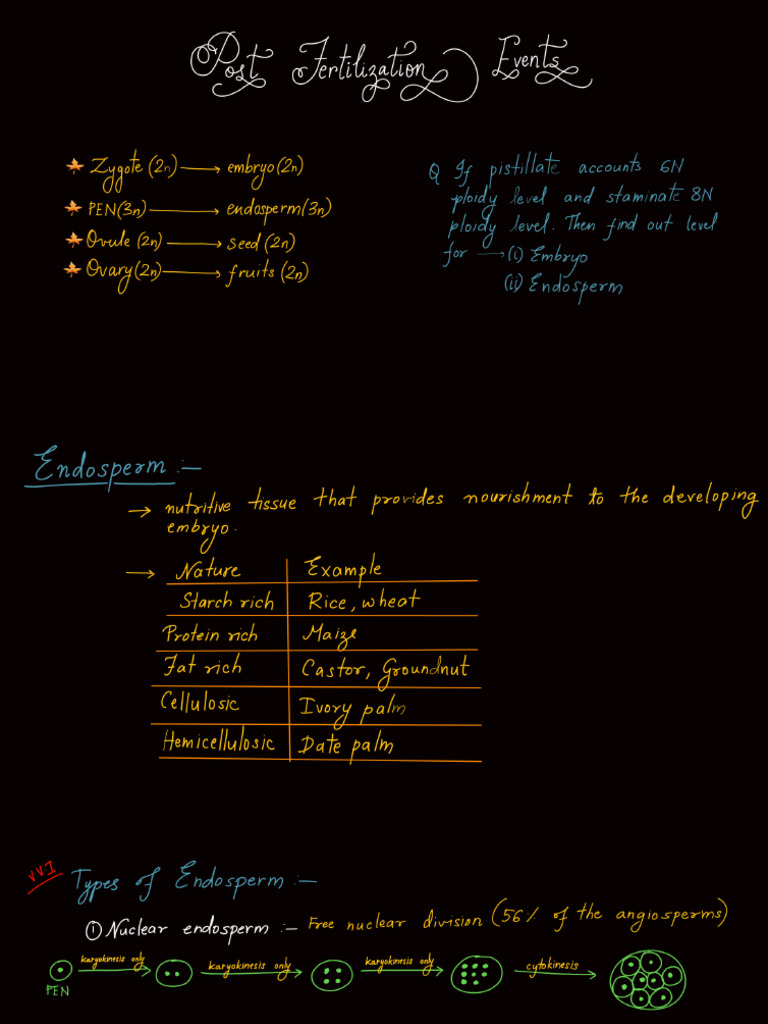 Post Fertilization Events
Zygote (2n) → embryo (2n)
PEN (3n) → endosperm (3n)
Ovule (2n) → seed (2n)
Ovary (2n) → fruits (2n)
Q If pistillate accounts 6N
ploidy level and staminate 8N
ploidy level. Then find out level
for → (i) Embryo
(ii) Endosperm
Endosperm :-
→ nutritive tissue that provides nourishment to the developing
embryo.
→ Nature Example
Starch rich Rice, wheat
Protein rich Maize
Fat rich Castor, Groundnut
Cellulosic Ivory palm
Hemicellulosic Date palm
V.V.I
Types of Endosperm :-
① Nuclear endosperm :- Free nuclear division (56% of the angiosperms)
karyokinesis only karyokinesis only karyokinesis only cytokinesis
PEN